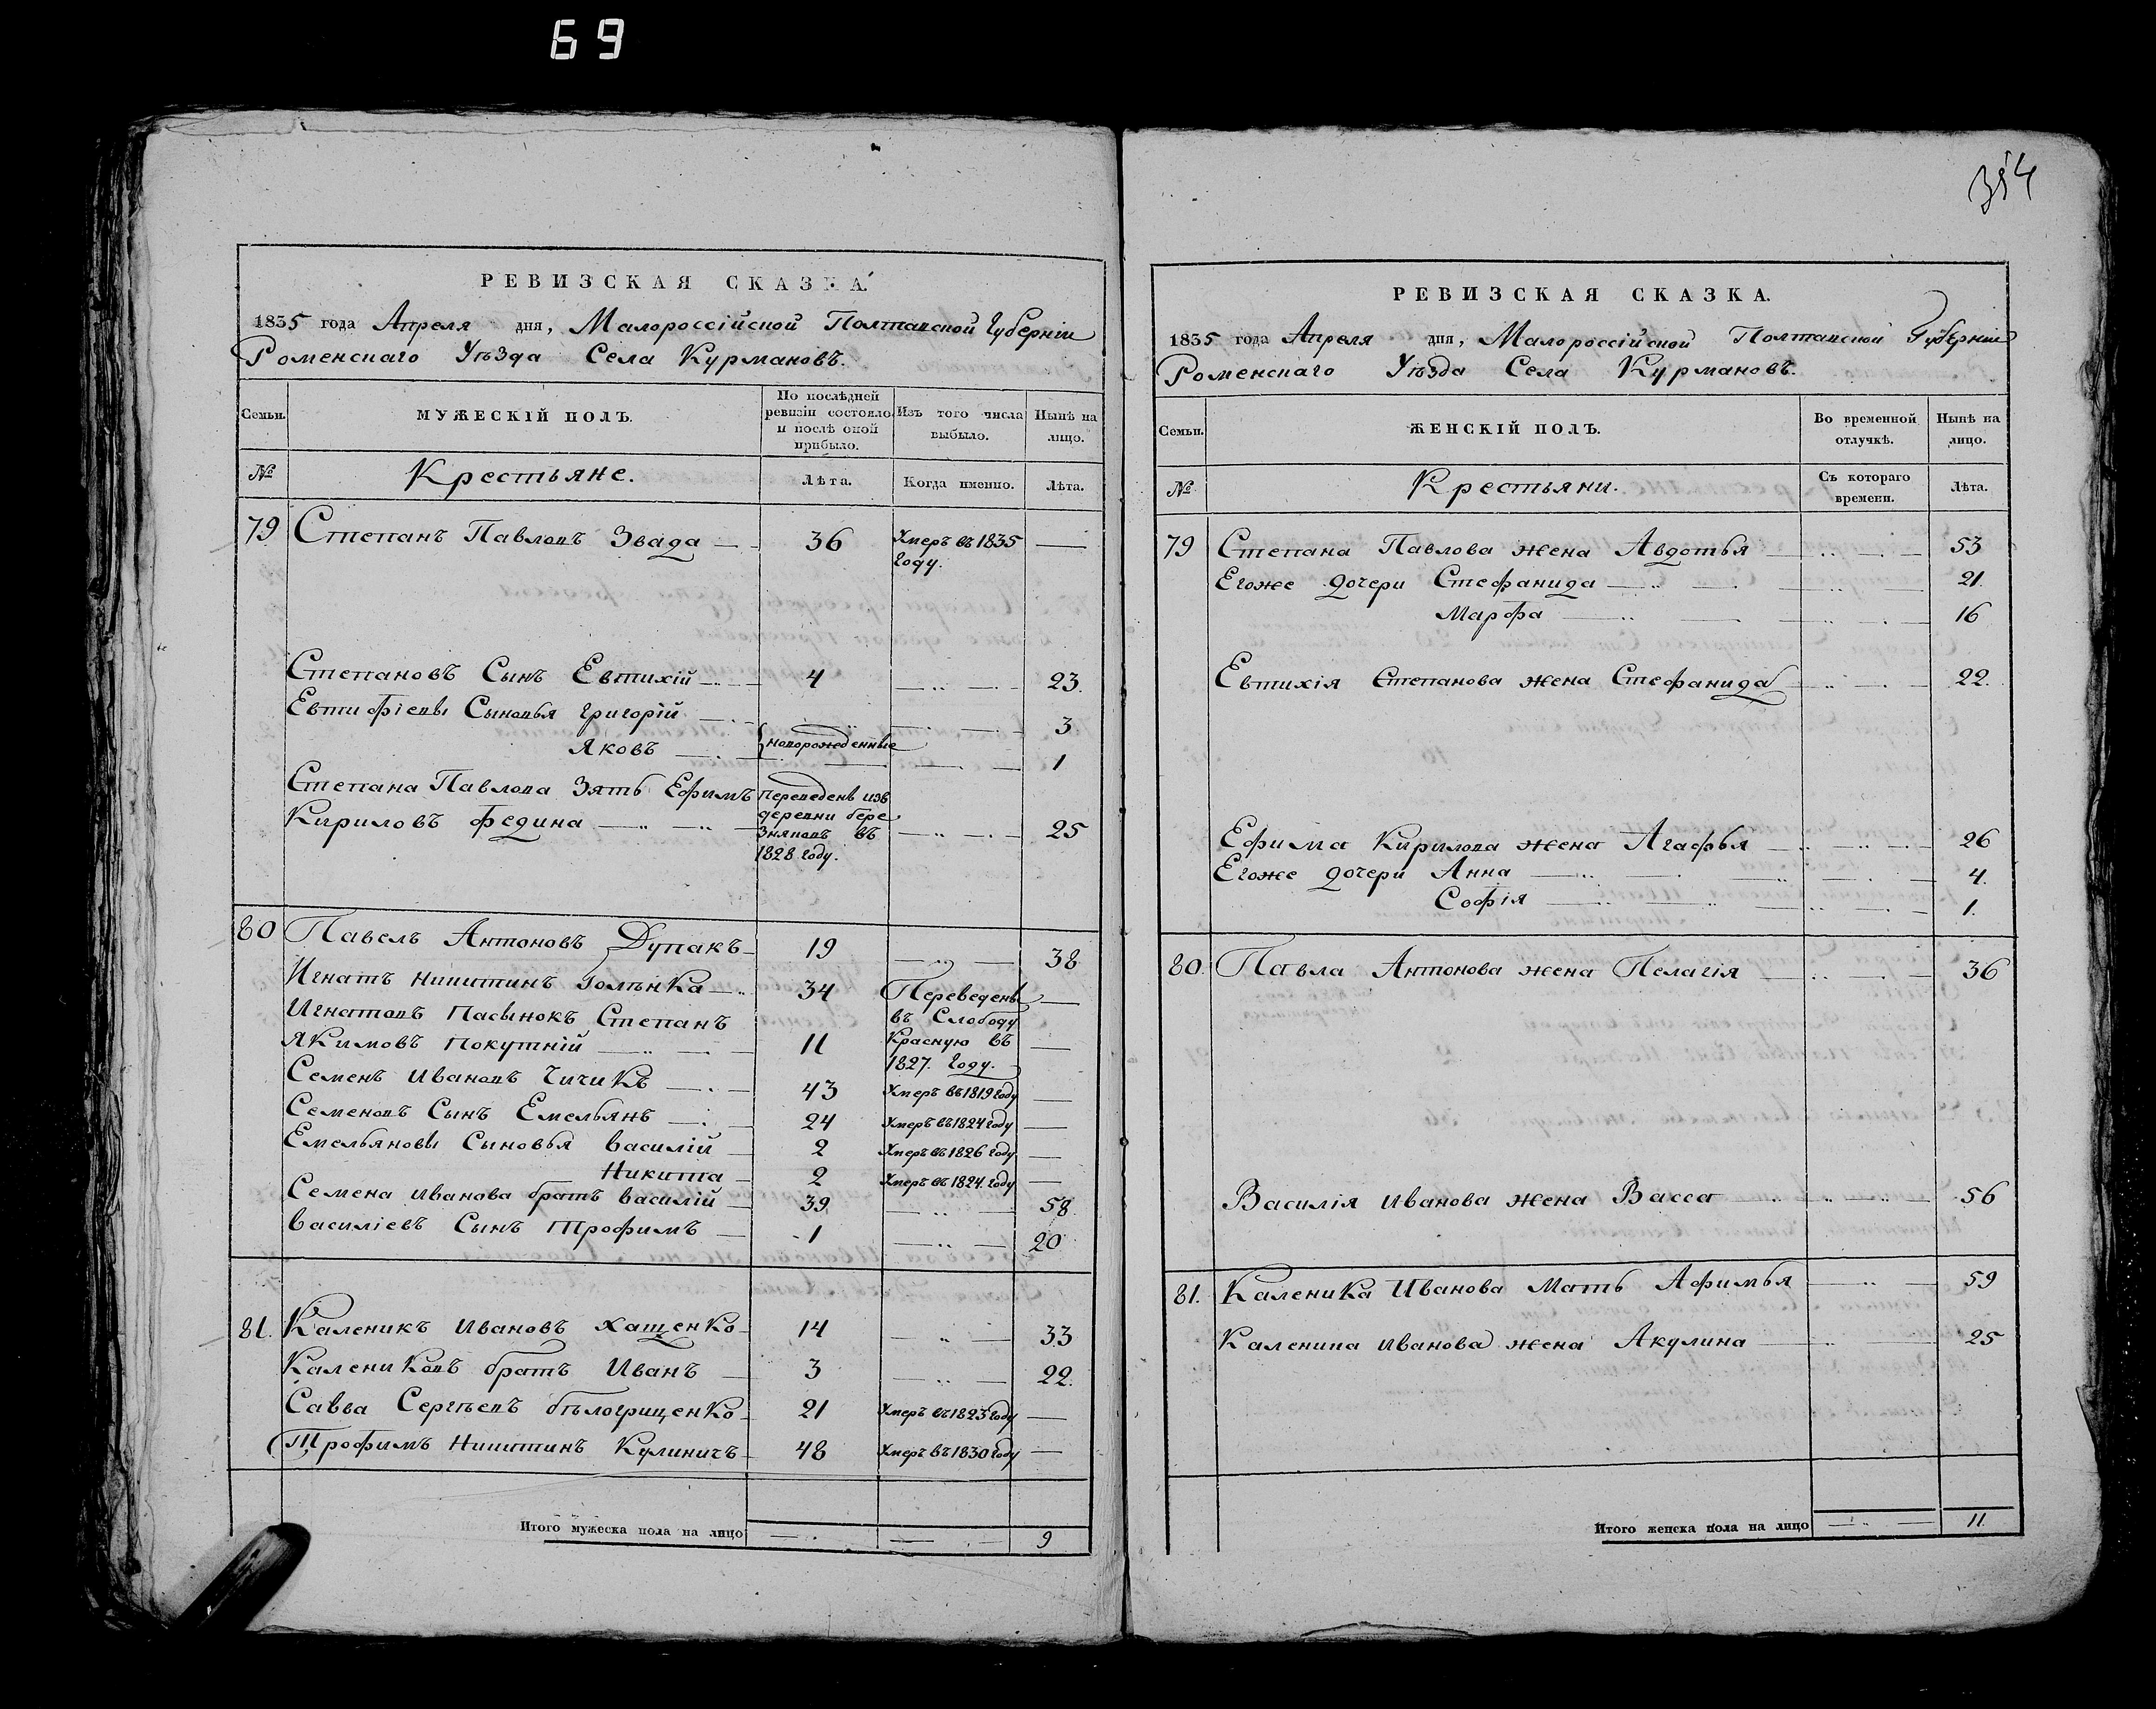 69
354
РЕВИЗСКАЯ СКАЗКА.
1835 года Апреля дня, Малороссійской Полтавской Губерніи
Роменскаго Уѣзда Села Курмановъ.
Семьи. МУЖЕСКІЙ ПОЛЪ. По послѣдней ревизіи состояло и послѣ оной прибыло. Изъ того числа выбыло. Нынѣ на лицо.
№ Крестьяне. Лѣта. Когда именно. Лѣта.
79 Степанъ Павловъ Звада 36 Умеръ въ 1835 году. —
Степановъ Сынъ Евтихій 4 — 23.
Евтифіевы Сыновья Григорій — 3
Яковъ новорожденные — 1
Степана Павлова Зять Ефимъ переведенъ изъ
Кириловъ Федина деревни бере
зняковъ въ — 25
1828 году.
80 Павелъ Антоновъ Дупакъ 19 — 38
Игнатъ Никитинъ Голѣнка 34 Переведены —
Игнатовъ Пасынокъ Степанъ въ Слободу
Якимовъ Покутній 11 Красную въ —
1827. году.
Семенъ Ивановъ Чичикъ 43 Умеръ въ 1819 году —
Семеновъ Сынъ Емельянъ 24 Умеръ въ 1824 году —
Емельяновы Сыновья Василій 2 Умеръ въ 1826 году —
Никита 2 Умеръ въ 1824. году —
Семена Иванова братъ Василій 39 — 58
Василіевъ Сынъ Трофимъ 1 — 20
81. Каленикъ Ивановъ Хащенко 14 — 33
Калениковъ братъ Иванъ 3 — 22.
Савва Сергѣевъ Бѣлогрищенко 21 Умеръ въ 1823 году —
Трофимъ Никитинъ Кулиничъ 48 Умеръ въ 1830 году —
Итого мужеска пола на лицо — — 9
РЕВИЗСКАЯ СКАЗКА.
1835 года Апреля дня, Малороссійской Полтавской Губерніи
Роменскаго Уѣзда Села Курмановъ.
Семьи. ЖЕНСКІЙ ПОЛЪ. Во временной отлучкѣ. Нынѣ на лицо.
№ Крестьяни. Съ котораго времени. Лѣта.
79 Степана Павлова жена Авдотья — 53
Егоже дочери Стефанида — 21.
Марфа — 16
Евтихія Степанова жена Стефанида — 22.
Ефима Кирилова жена Агафья — 26
Егоже дочери Анна — 4.
Софія — 1.
80. Павла Антонова жена Пелагія — 36
Василія Иванова жена Васса — 56
81. Каленика Иванова Мать Афимья — 59
Каленика Иванова жена Акулина — 25
Итого женска пола на лицо — 11.